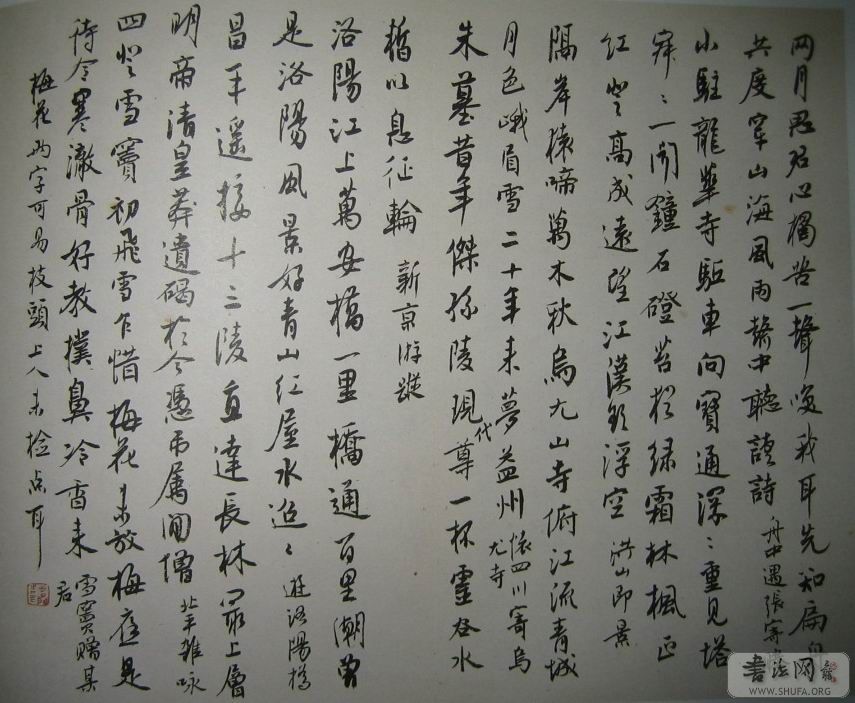 兩月思君心獨苦一聲喚我耳先知扁舟
共度穿山海風雨聲中聽讀詩 舟中遇張寄
小駐龍華寺驅車向寶通深〻重見塔
寂〻一聞鐘石磴苔猶綠霜林楓正
紅登高成遠望江漢欲浮空 洪山即景
隔岸猿啼萬木秋烏尤山寺俯江流青城
月色峨眉雪二十年來夢益州 懷四川寄烏尤寺
朱墓昔年傑孫陵現代尊一杯靈谷水
暫以息征輪 新京游蹤
洛陽江上萬安橋一里橋通百里潮曾
是洛陽風景好青山紅屋水迢〻 遊洛陽橋
昌平遥接十三陵直達長林最上層
明帝清皇莽遺碣於今憑弔屬閒僧 北平雜咏
四登雪竇初飛雪乍惜梅花未放梅應是
待令寒澈骨好教撲鼻冷香來 雪竇贈某君
梅花兩字可易枝頭上人未檢点耳
書法网
WWW.SHUFA.ORG